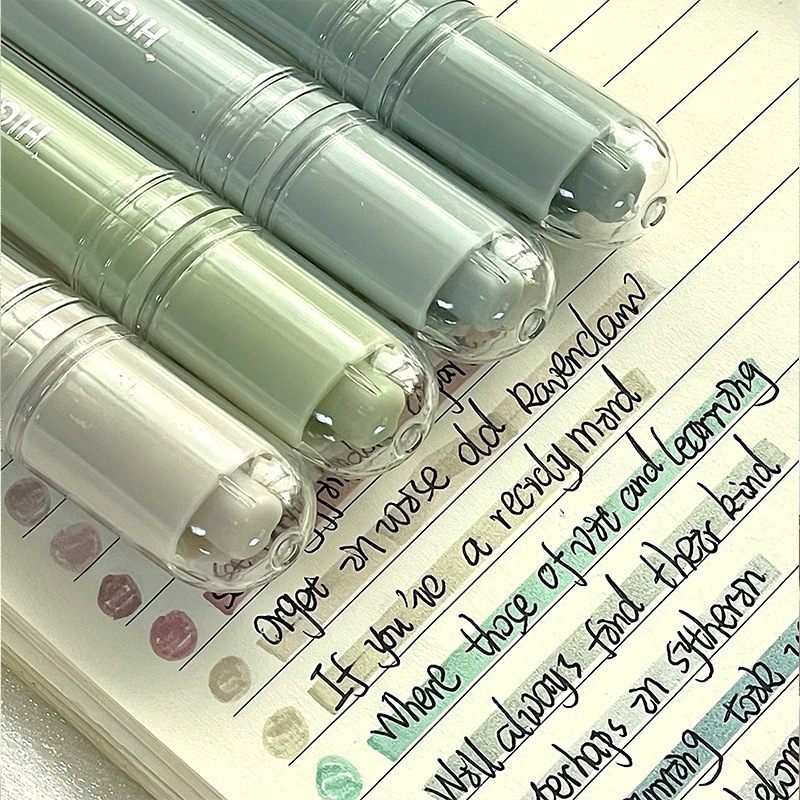 HIGH
HIGH
orger in wise old Ravenclaw
If you're a recidy mind
Where those of wit and learning
Will always find their kind
erhaps in sytherin
unning
took